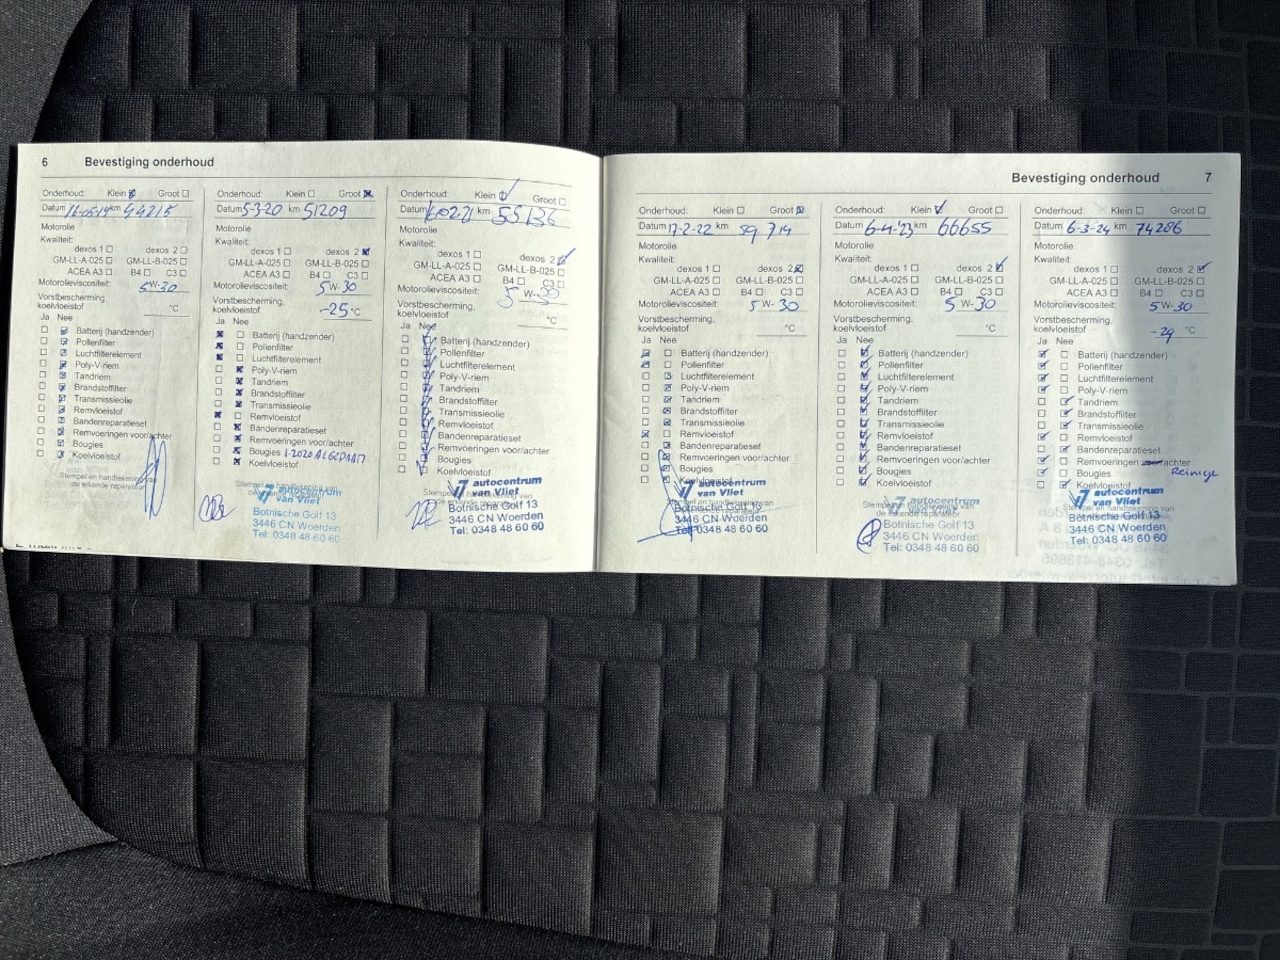 6 Bevestiging onderhoud
Onderhoud: Klein Groot
Datum 16-05-19 km 44215
Motorolie
Kwaliteit:
dexos 1 dexos 2
GM-LL-A-025 GM-LL-B-025
ACEA A3 B4 C3
Motorolieviscositeit: 5W-30
Vorstbescherming,
koelvloeistof °C
Ja Nee
Batterij (handzender)
Pollenfilter
Luchtfilterelement
Poly-V-riem
Tandriem
Brandstoffilter
Transmissieolie
Remvloeistof
Bandenreparatieset
Remvoeringen voor/achter
Bougies
Koelvloeistof
Stempel en handtekening van
de erkende reparateur
Onderhoud: Klein Groot
Datum 5-3-20 km 51209
Motorolie
Kwaliteit:
dexos 1 dexos 2
GM-LL-A-025 GM-LL-B-025
ACEA A3 B4 C3
Motorolieviscositeit: 5W-30
Vorstbescherming,
koelvloeistof -25 °C
Ja Nee
Batterij (handzender)
Pollenfilter
Luchtfilterelement
Poly-V-riem
Tandriem
Brandstoffilter
Transmissieolie
Remvloeistof
Bandenreparatieset
Remvoeringen voor/achter
Bougies 1-2020
Koelvloeistof
autocentrum
van Vliet
Botnische Golf 13
3446 CN Woerden
Tel: 0348 48 60 60
Onderhoud: Klein Groot
Datum km 55136
Motorolie
Kwaliteit:
dexos 1 dexos 2
GM-LL-A-025 GM-LL-B-025
ACEA A3 B4 C3
Motorolieviscositeit: 5W-30
Vorstbescherming,
koelvloeistof °C
Ja Nee
Batterij (handzender)
Pollenfilter
Luchtfilterelement
Poly-V-riem
Tandriem
Brandstoffilter
Transmissieolie
Remvloeistof
Bandenreparatieset
Remvoeringen voor/achter
Bougies
Koelvloeistof
autocentrum
van Vliet
Botnische Golf 13
3446 CN Woerden
Tel: 0348 48 60 60
Bevestiging onderhoud 7
Onderhoud: Klein Groot
Datum 17-2-22 km 59 714
Motorolie
Kwaliteit:
dexos 1 dexos 2
GM-LL-A-025 GM-LL-B-025
ACEA A3 B4 C3
Motorolieviscositeit: 5W-30
Vorstbescherming,
koelvloeistof °C
Ja Nee
Batterij (handzender)
Pollenfilter
Luchtfilterelement
Poly-V-riem
Tandriem
Brandstoffilter
Transmissieolie
Remvloeistof
Bandenreparatieset
Remvoeringen voor/achter
Bougies
Koelvloeistof
autocentrum
van Vliet
Botnische Golf 13
3446 CN Woerden
Tel: 0348 48 60 60
Onderhoud: Klein Groot
Datum 6-4-'23 km 66655
Motorolie
Kwaliteit:
dexos 1 dexos 2
GM-LL-A-025 GM-LL-B-025
ACEA A3 B4 C3
Motorolieviscositeit: 5W-30
Vorstbescherming,
koelvloeistof °C
Ja Nee
Batterij (handzender)
Pollenfilter
Luchtfilterelement
Poly-V-riem
Tandriem
Brandstoffilter
Transmissieolie
Remvloeistof
Bandenreparatieset
Remvoeringen voor/achter
Bougies
Koelvloeistof
autocentrum
van Vliet
Botnische Golf 13
3446 CN Woerden
Tel: 0348 48 60 60
Onderhoud: Klein Groot
Datum 6-3-24 km 74286
Motorolie
Kwaliteit:
dexos 1 dexos 2
GM-LL-A-025 GM-LL-B-025
ACEA A3 B4 C3
Motorolieviscositeit: 5W-30
Vorstbescherming,
koelvloeistof -29 °C
Ja Nee
Batterij (handzender)
Pollenfilter
Luchtfilterelement
Poly-V-riem
Tandriem
Brandstoffilter
Transmissieolie
Remvloeistof
Bandenreparatieset
Remvoeringen voor/achter
Bougies Reinige
Koelvloeistof
autocentrum
van Vliet
Botnische Golf 13
3446 CN Woerden
Tel: 0348 48 60 60